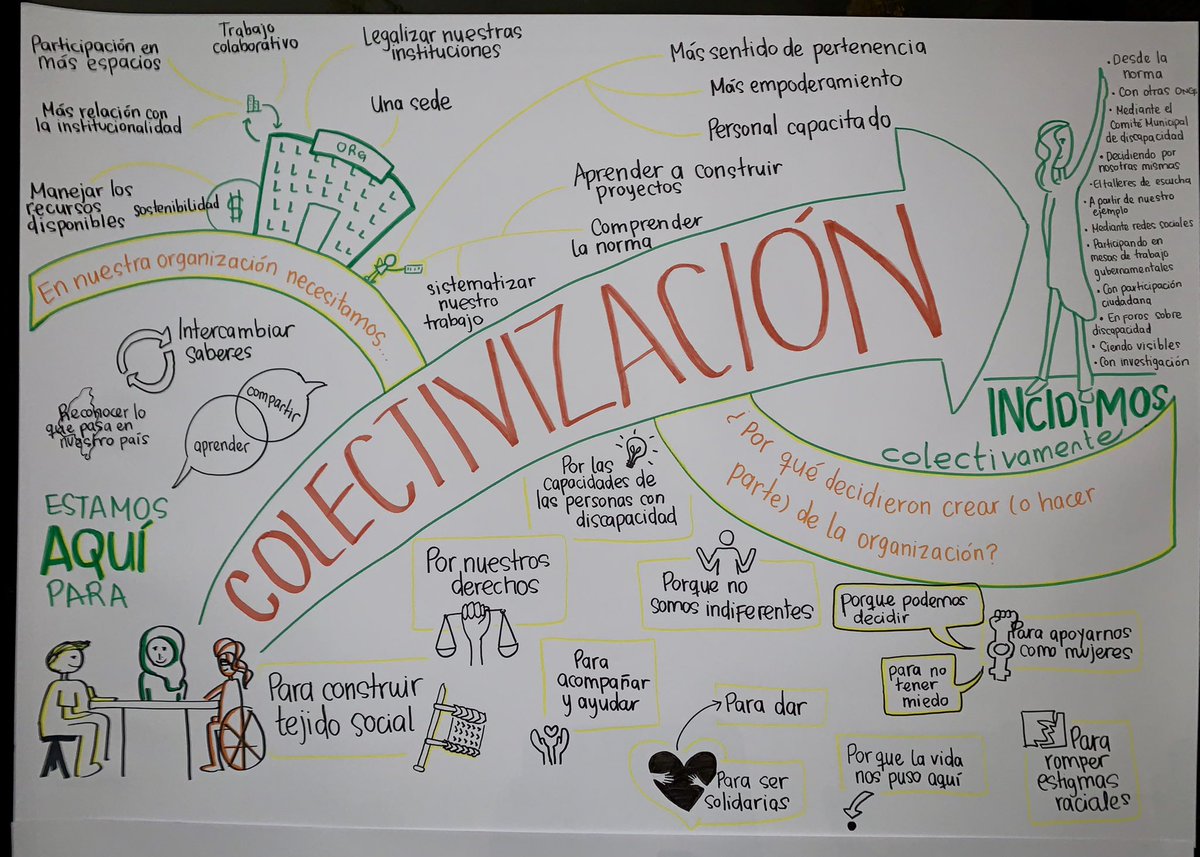 Participación en
más espacios
Trabajo
colaborativo
Legalizar nuestras
instituciones
Más relación con
la institucionalidad
Una sede
ORG
Manejar los
recursos
disponibles
sostenibilidad
$
En nuestra organización necesitamos...
Más sentido de pertenencia
Más empoderamiento
Personal capacitado
Aprender a construir
proyectos
Comprender
la norma
sistematizar
nuestro
trabajo
COLECTIVIZACIÓN
• Desde la
norma
• Con otras ONGs
• Mediante el
Comité Municipal
de discapacidad
• Decidiendo por
nosotras mismas
• El talleres de escucha
• A partir de nuestro
ejemplo
• Mediante redes sociales
• Participando en
mesas de trabajo
gubernamentales
• Con participación
ciudadana
• En foros sobre
discapacidad
• Siendo visibles
• Con investigación
INCIDIMOS
colectivamente
Intercambiar
saberes
Reconocer lo
que pasa en
nuestro país
compartir
aprender
ESTAMOS
AQUÍ
PARA
¿Por qué decidieron crear (o hacer
parte) de la organización?
Por las
capacidades de
las personas con
discapacidad
Por nuestros
derechos
Porque no
somos indiferentes
Porque podemos
decidir
Para apoyarnos
como mujeres
para no
tener
miedo
Para construir
tejido social
Para
acompañar
y ayudar
Para dar
Para ser
solidarias
Porque la vida
nos puso aquí
Para
romper
estigmas
raciales